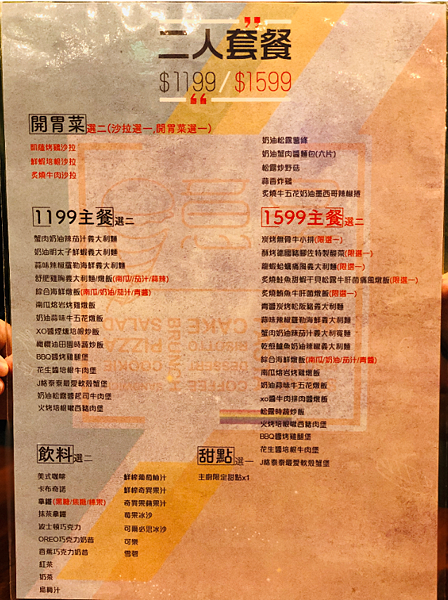 二人套餐
$1199/$1599
開胃菜選二(沙拉選一,開胃菜選一)
凱薩烤雞沙拉
鮮蝦培根沙拉
炙燒牛肉沙拉
奶油松露薯條
奶油蟹肉醬麵包(六片)
松露炒野菇
蒜香炸雞
炙燒牛五花奶油墨西哥辣椒捲
1199主餐選二
蟹肉奶油辣茄汁義大利麵
奶油明太子鮮蝦義大利麵
蒜味辣椒蘿勒海鮮義大利麵
舒肥雞胸義大利麵/燉飯(南瓜/茄汁/蒜辣)
綜合海鮮燉飯(南瓜/奶油/茄汁/青醬)
南瓜熔岩烤雞燉飯
奶油蒜味牛五花燉飯
XO醬煙燻培根炒飯
橄欖油田園時蔬炒飯
BBQ醬烤雞腿堡
花生醬培根牛肉堡
J格泰泰最愛軟殼蟹堡
奶油松露醬起司牛肉堡
火烤培根嫩西豬肉堡
1599主餐選二
炭烤無骨牛小排(限選一)
酥烤德國豬腳佐特製酸菜(限選一)
龍蝦蛤蠣義大利麵(限選一)
炙燒鮑魚牛肝菌燉飯(限選一)
青醬炭烤松阪豬義大利麵
蒜味辣椒蘿勒海鮮義大利麵
蟹肉奶油辣茄汁義大利寬麵
乾煎鱸魚奶油辣椒義大利麵
綜合海鮮燉飯(南瓜/奶油/茄汁/青醬)
南瓜熔岩烤雞燉飯
奶油蒜味牛五花燉飯
xo醬牛肉排肉醬燉飯
松露時蔬炒飯
火烤培根嫩西豬肉堡
BBQ醬烤雞腿堡
花生醬培根牛肉堡
J格泰泰最愛軟殼蟹堡
飲料選二
美式咖啡
卡布奇諾
拿鐵(黑糖/焦糖/榛果)
抹茶拿鐵
波士頓巧克力
OREO巧克力奶昔
香蕉巧克力奶昔
紅茶
奶茶
鮮榨葡萄柚汁
鮮榨奇異果汁
奇異果蘋果汁
莓果冰沙
可爾必思冰沙
可樂
雪碧
甜點選一
主廚限定甜點x1